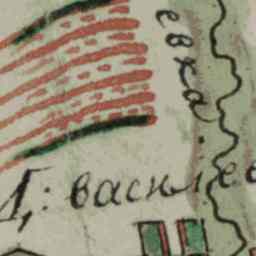 евка
Д: василев